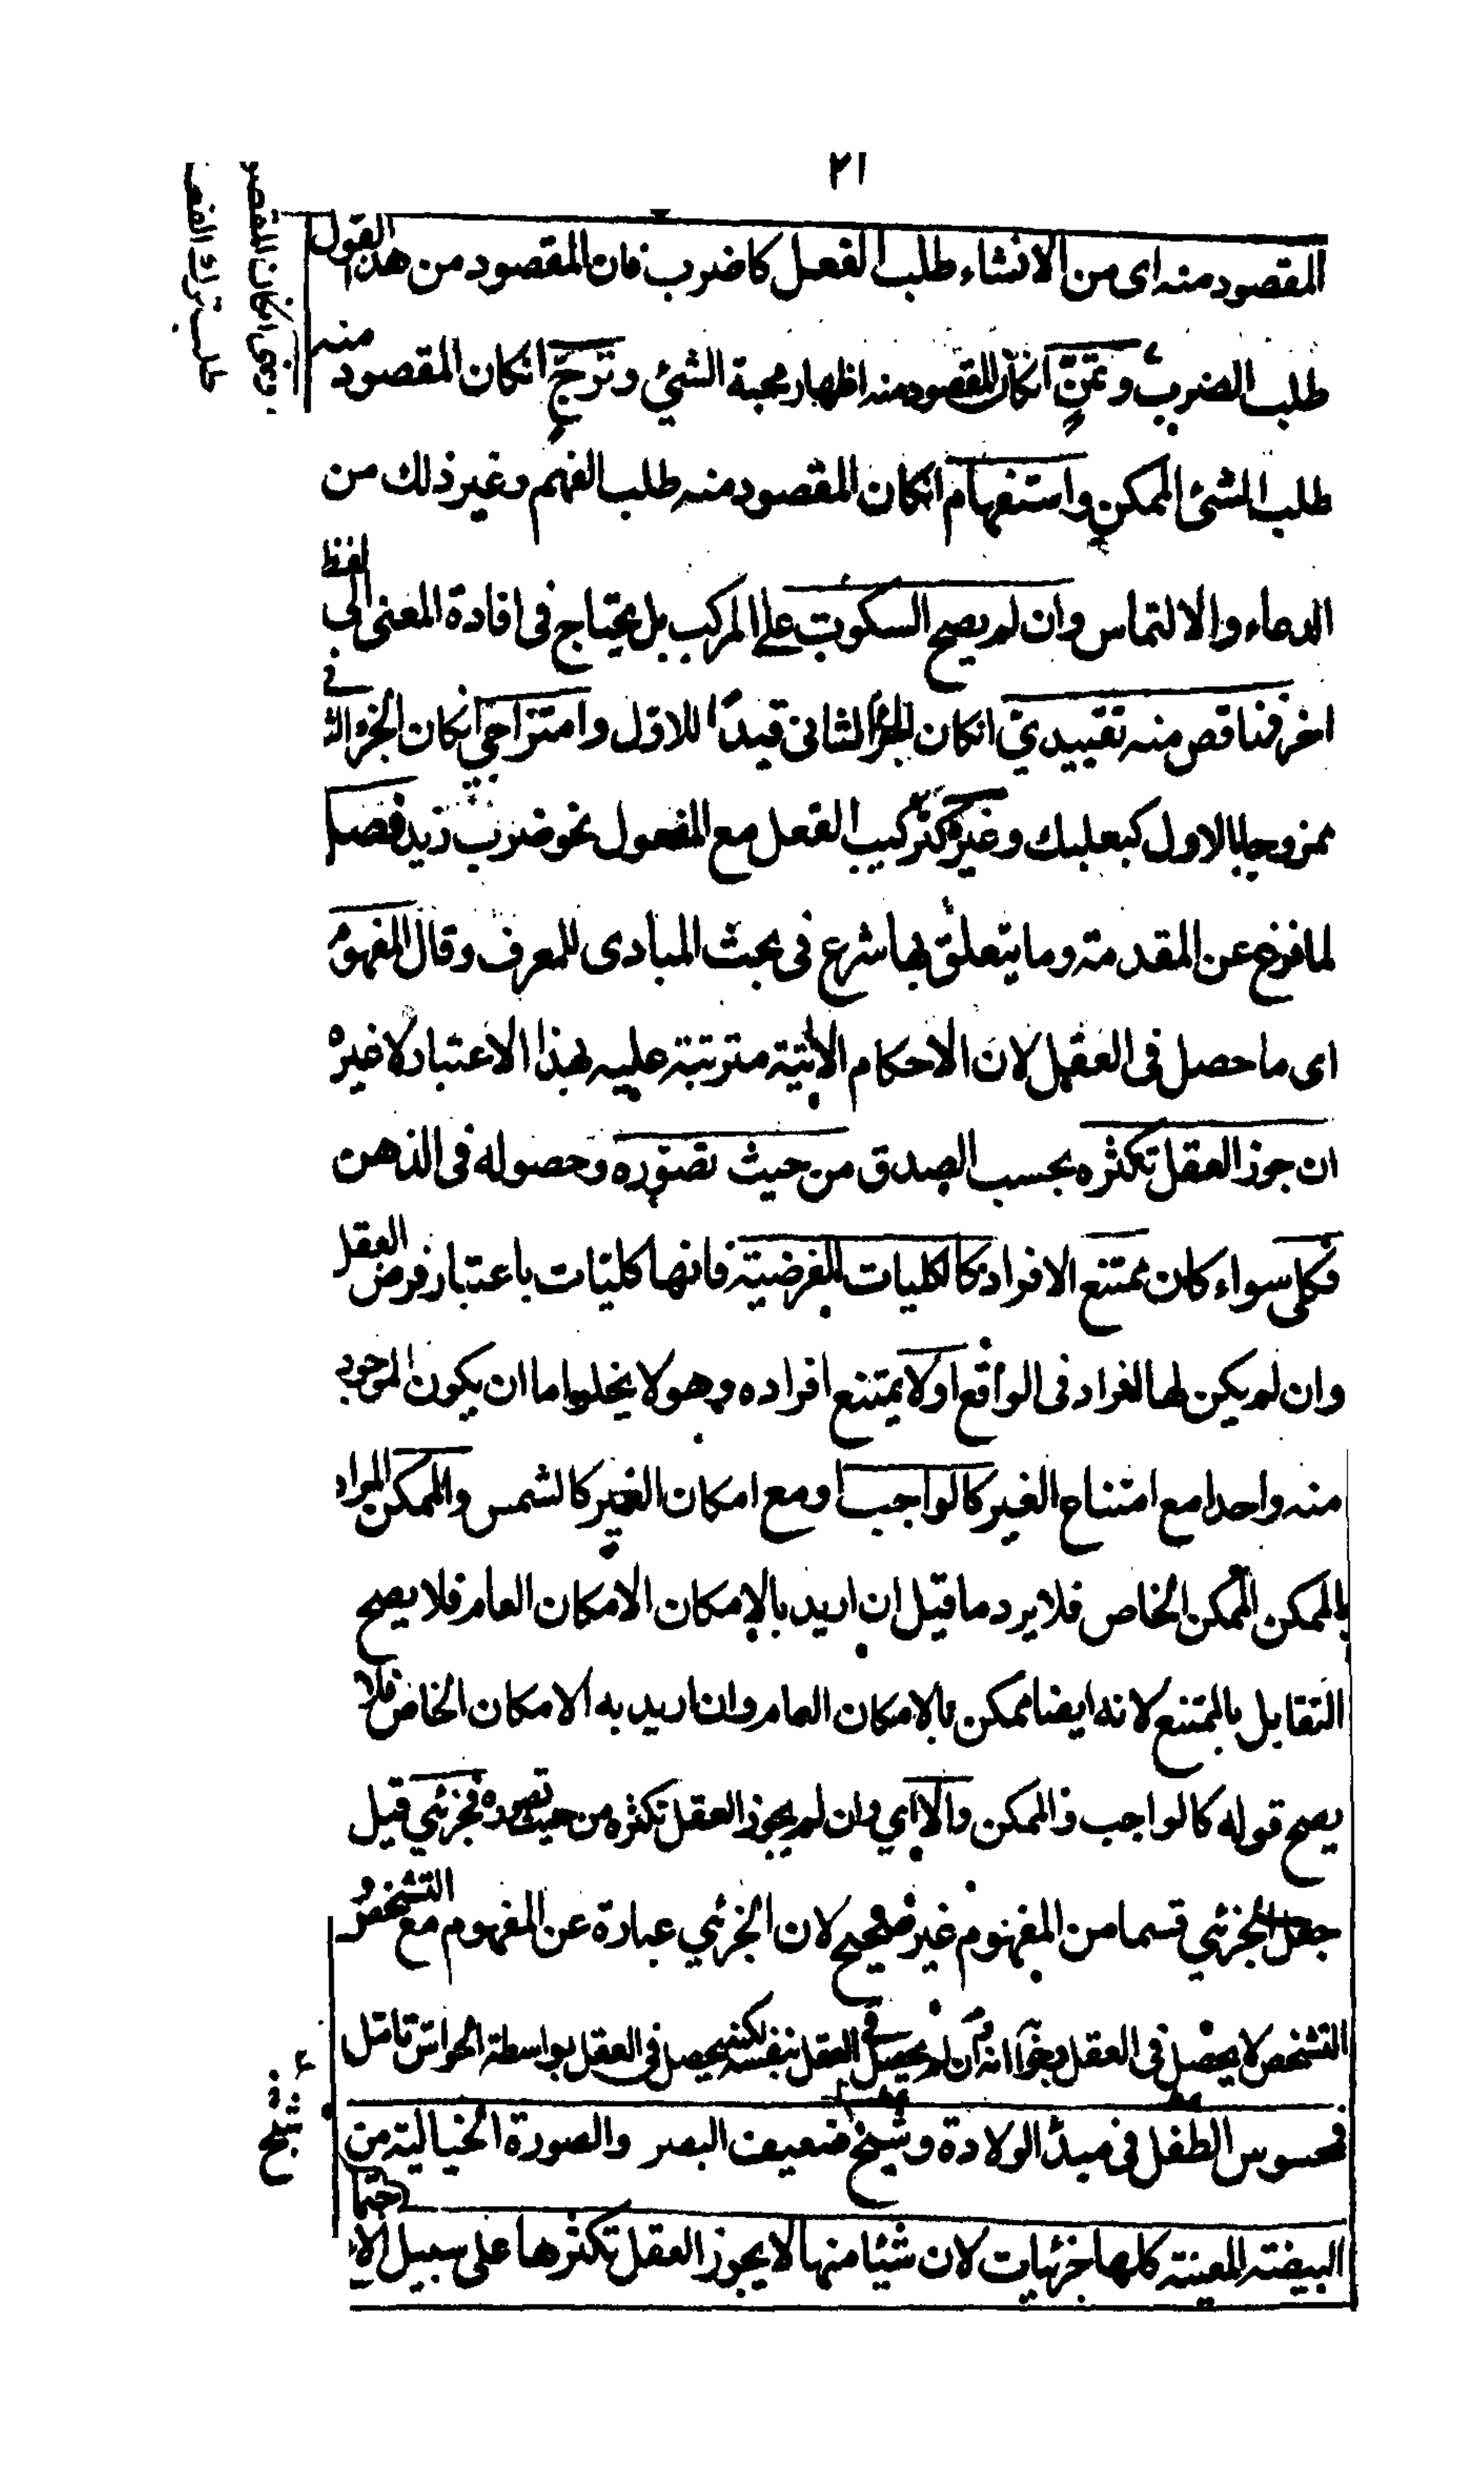 ٢١
المقصود منه اى من الانشاء طلب الفعل كاضرب فان المقصود من هذا القول
طلب الضرب وتمنٍ انكان المقصود منه اظهار محبة الشئ وترجٍ انكان المقصود منه
طلب الشئ الممكن واستفهام انكان المقصود منه طلب الفهم وغير ذلك من
الدعاء والالتماس وان لم يصح السكوت على المركب بل يحتاج فى افادة المعنى الى لفظ
اخر فناقص منه تقييدي انكان الجزء الثانى قيدًا للاول وامتزاجي انكان الجزء الثانى
ممزوجا بالاول كبعلبك وغيره كتركيب الفعل مع المفعول نحو ضرب زيد فصل
لما فرغ عن المقدمة وما يتعلق بها شرع فى بحث المبادى للمعرف وقال المفهوم
اى ما حصل فى العقل لان الاحكام الآتية مترتبة عليه بهذا الاعتبار لا غيره
ان جوز العقل تكثره بحسب الصدق من حيث تصوره وحصوله فى الذهن
فكلى سواء كان ممتنع الافراد كالكليات الفرضية فانها كليات باعتبار فرض العقل
وان لم يكن لها افراد فى الواقع اولا يمتنع افراده وهو لا يخلو اما ان يكون الموجود
منه واحدا مع امتناع الغير كالواجب او مع امكان الغير كالشمس والممكن المراد
بالممكن الممكن الخاص فلا يرد ما قيل ان اريد بالامكان الامكان العام فلا يصح
التقابل بالممتنع لانه ايضا ممكن بالامكان العام وان اريد به الامكان الخاص فلا
يصح قوله كالواجب والممكن والا اي وان لم يجوز العقل تكثره من حيث تصوره فجزئي قيل
جعل الجزئي قسما من المفهوم غير صحيح لان الجزئي عبارة عن المفهوم مع التشخص و
التشخص لا يحصل فى العقل وجوابه انه وان لم يحصل فى العقل بنفسه لكنه يحصل فى العقل بواسطة الحواس تامل
فمحسوس الطفل فى مبدأ الولادة وشيخ ضعيف البصر والصورة الخيالية من
البيضة المعينة كلها جزئيات لان شيئا منها لا يجوز العقل تكثرها على سبيل الاجتماع
ونهى انكان المقصود
طلب ترك الفعل
شبح